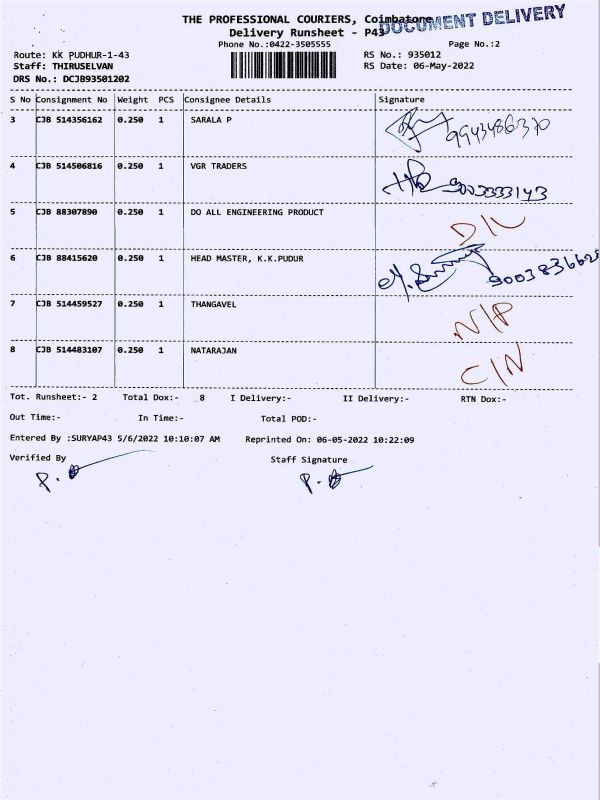 THE PROFESSIONAL COURIERS, Coimbatore
DOCUMENT DELIVERY
Delivery Runsheet - P43
Phone No.:0422-3505555 Page No.:2
Route: KK PUDHUR-1-43 RS No.: 935012
Staff: THIRUSELVAN RS Date: 06-May-2022
DRS No.: DCJB93501202
S No Consignment No Weight PCS Consignee Details Signature
3 CJB 514356162 0.250 1 SARALA P 9943486370
4 CJB 514506816 0.250 1 VGR TRADERS 9003333143
5 CJB 88307890 0.250 1 DO ALL ENGINEERING PRODUCT D/L
6 CJB 88415620 0.250 1 HEAD MASTER, K.K.PUDUR
7 CJB 514459527 0.250 1 THANGAVEL N/P
8 CJB 514483107 0.250 1 NATARAJAN C/N
Tot. Runsheet:- 2 Total Dox:- 8 I Delivery:- II Delivery:- RTN Dox:-
Out Time:- In Time:- Total POD:-
Entered By :SURYAP43 5/6/2022 10:10:07 AM Reprinted On: 06-05-2022 10:22:09
Verified By Staff Signature